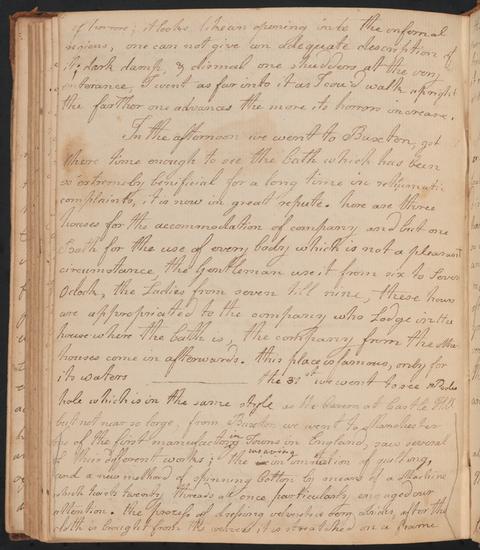 of horrors; it looks like an opening into the infernal
regions, one can not give an adequate description of
it; dark damp, & dismal one shudders at the very
enterance, I went as far into it as I cou'd walk upright
the farther one advances the more its horrors increase.
In the afternoon we went to Buxton, got
there time enough to see the bath which has been
so extremely benificial for a long time in
complaints, it is now in great repute. here are three
houses for the accommodation of company and but one
Bath for the use of every body which is not a pleasant
circumstance, the Gentleman use it from six to Seven
Oclock, the Ladies from seven till nine, these hours
are appropriated to the company who Lodge in the
house where the bath is, the company from the other
houses come in afterwards. this place is famous, only for
its waters the 31st we went to see
hole which is in the same style as the Cavern at Castle
but not near so large, from Buxton we went to Manchester
one of the first manufacturing Towns in England, saw several
of their different works; the weaving in imitation of quilting,
and a new method of spinning Cotton by means of a Machine
which has twenty threads at once, particularly, engaged our
attention. the process of velverets is very curious, after the
cloth is brought from the weavers it is streatched on a frame